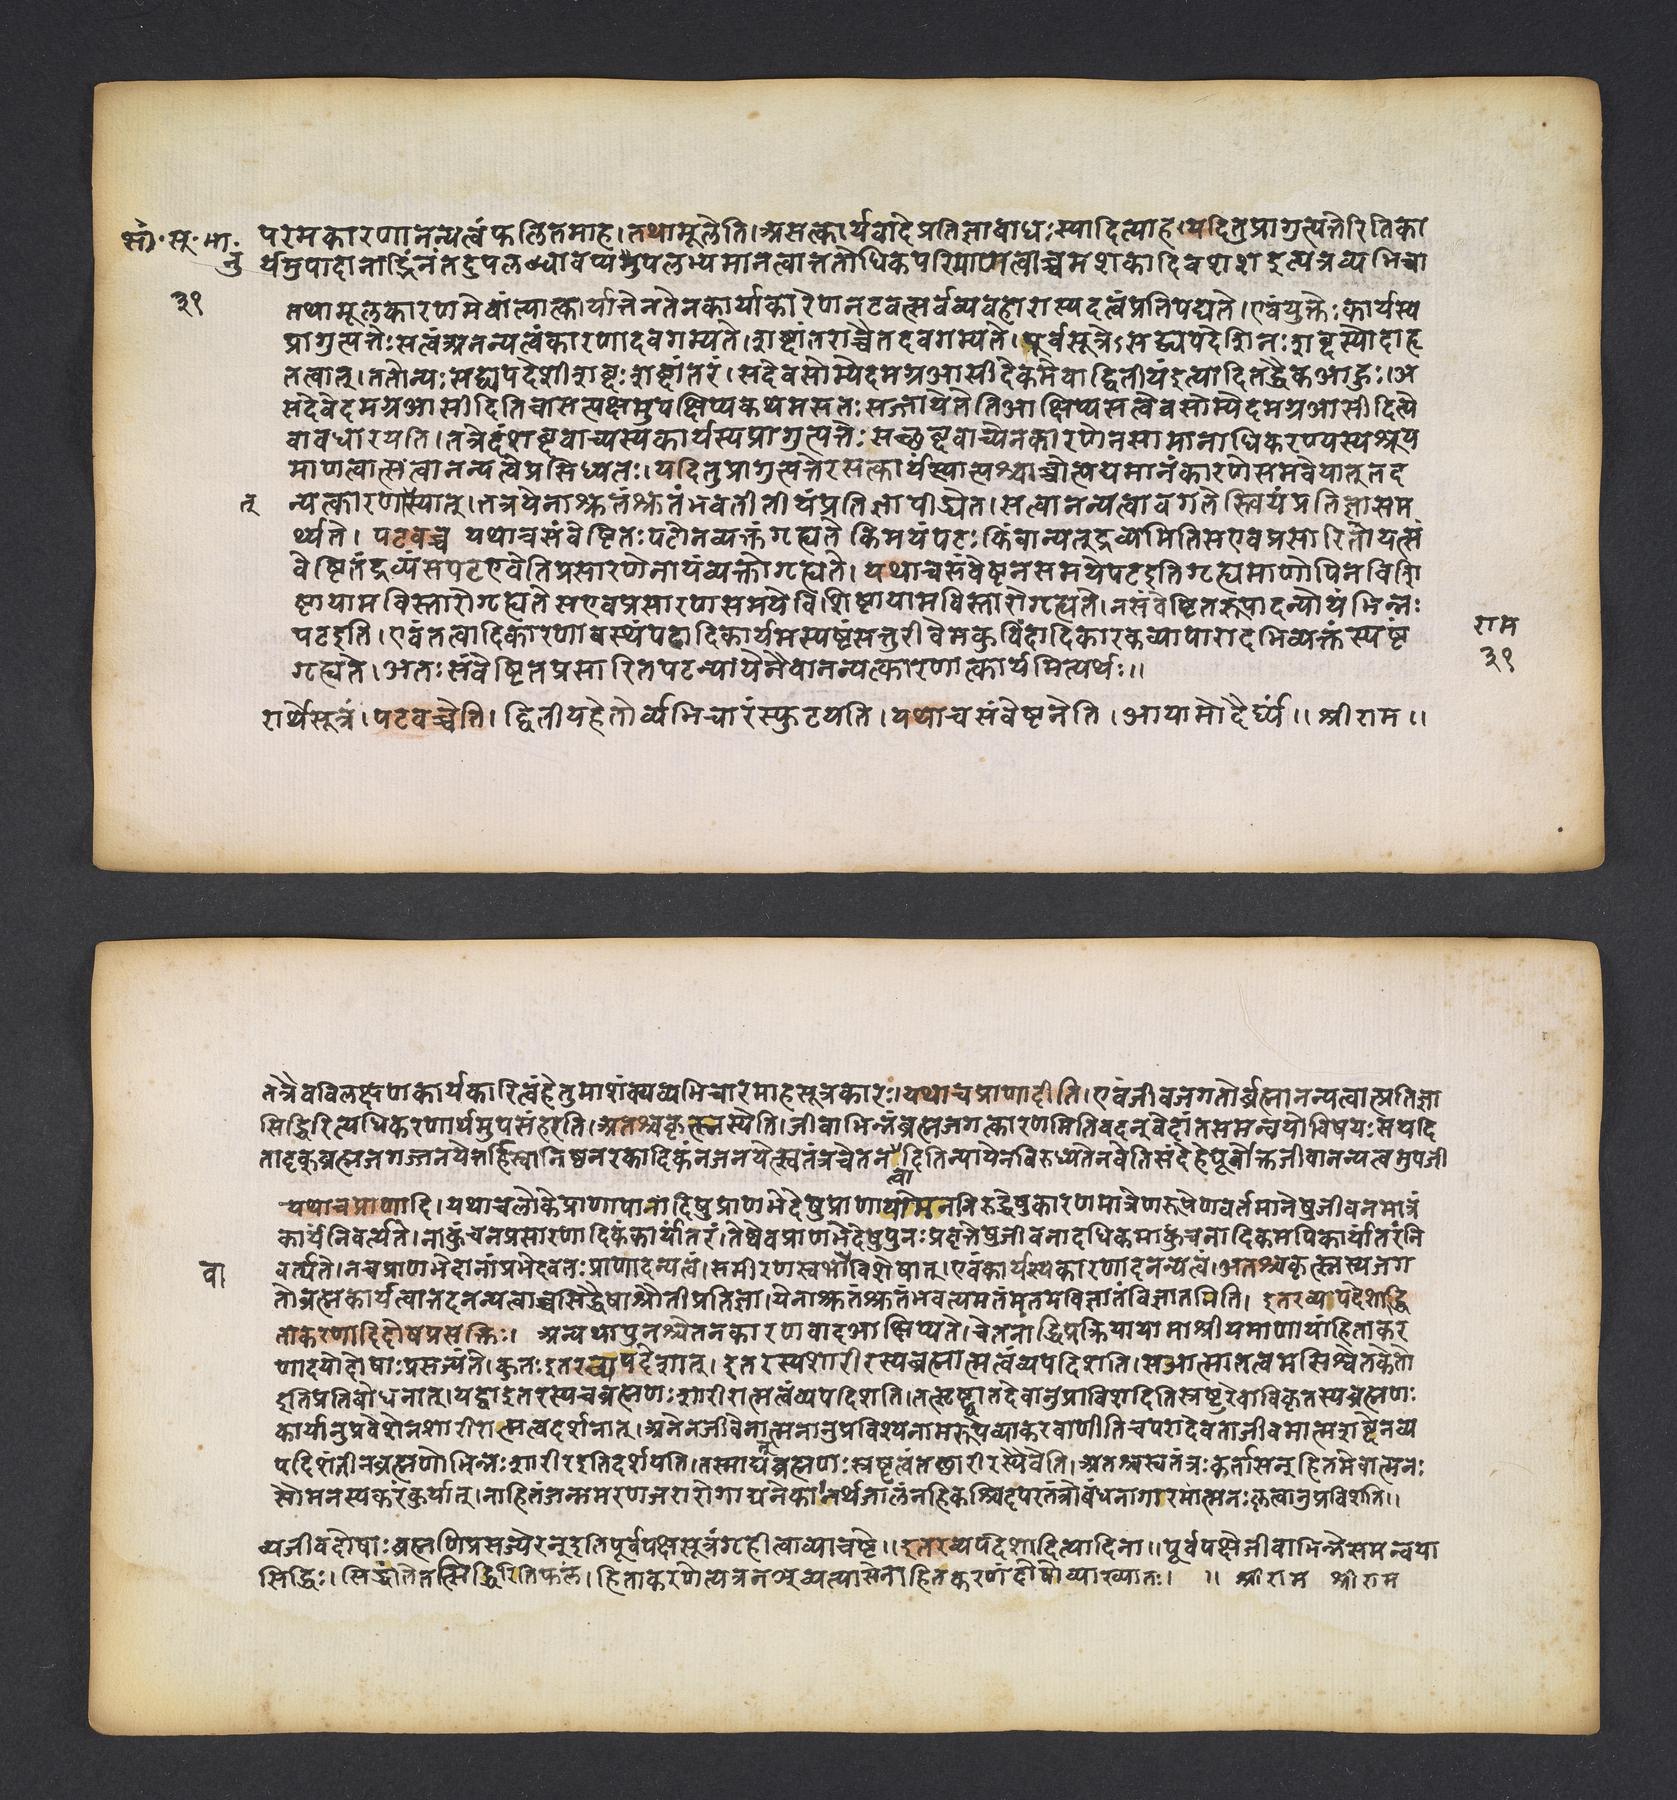 शां. सू. भा. नु
३१
परमकारणानन्यत्वं फलितमाह । तथामूलेति । असत्कार्यवादे प्रतिज्ञाबाधः स्यादित्याह । यदि तु प्रागुत्पत्तेरिति का
र्यमुपादानाद्भिन्नं तदुपलब्धावप्यनुपलभ्यमानत्वात्ततोधिकपरिमाणत्वाच्च मशकादिव शश इत्यत्र व्यभिचा
तथा मूलकारणमेवांत्यात्कार्यात्तेन तेन कार्याकारेण नटवत्सर्वव्यवहारास्पदत्वं प्रतिपद्यते । एवं युक्तेः कार्यस्य
प्रागुत्पत्तेः सत्वं अनन्यत्वं कारणादवगम्यते । शब्दांतराच्चैतदवगम्यते । पूर्वसूत्रेऽसद्व्यपदेशिनः शब्दस्योदाहृ
तत्वात् । ततोन्यः सद्व्यपदेशी शब्दः शब्दांतरं । सदेव सोम्येदमग्र आसीदेकमेवाद्वितीयं इत्यादि तद्धैक आहुः । अ
सदेवेदमग्र आसीदिति चासत्पक्षमुपक्षिप्य कथमसतः सज्जायेतेति आक्षिप्य सत्वेव सोम्येदमग्र आसीदित्ये
वावधारयति । तत्रेदं शब्दवाच्यस्य कार्यस्य प्रागुत्पत्तेः सच्छब्दवाच्येन कारणेन सामानाधिकरण्यस्य श्रूय
माणत्वात्सत्वानन्यत्वे प्रसिध्यतः । यदि तु प्रागुत्पत्तेरसत्कार्यं स्यात्पश्चाच्चोत्पद्यमानं कारणे समवेयात् तद
न्यत्कारणात्स्यात् । तत्र येनाश्रुतं श्रुतं भवतीतीयं प्रतिज्ञा पीड्येत । सत्वानन्यत्वावगतेस्त्वियं प्रतिज्ञा सम
त्
र्थ्यते । पटवच्च यथा च संवेष्टितः पटो न व्यक्तं गृह्यते किमयं पटः किंवान्यत् द्रव्यमिति स एव प्रसारितो यत्सं
वेष्टितं द्रव्यं स पट एवेति प्रसारणेनायं व्यक्तो गृह्यते । यथा च संवेष्टनसमये पट इति गृह्यमाणोपि न विशि
ष्टायामविस्तारो गृह्यते स एव प्रसारणसमये विशिष्टायामविस्तारो गृह्यते । न संवेष्टितरूपादन्योयं भिन्नः
पट इति । एवं तत्वादिकारणावस्थं पटादिकार्यमस्पष्टं सत्तुरीवेमकुविंदादिकारकव्यापारादभिव्यक्तं स्पष्टं
गृह्यते । अतः संवेष्टितप्रसारितपटन्यायेनैवानन्यत्कारणात्कार्यमित्यर्थः ॥
राम
३१
रार्थं सूत्रं । पटवच्चेति । द्वितीयहेतोर्व्यभिचारं स्फुटयति । यथा च संवेष्टनेति । आयामो दैर्घ्यं ॥ श्रीराम ॥
तत्रैव विलक्षणकार्यकारित्वं हेतुमाशंक्य व्यभिचारमाह सूत्रकारः । यथा च प्राणादीति । एवं जीवजगतोर्ब्रह्मानन्यत्वात्प्रतिज्ञा
सिद्धिरित्यधिकरणार्थमुपसंहरति । अतश्च कृत्स्नस्येति । जीवाभिन्नं ब्रह्म जगत्कारणमिति वदन् वेदांतसमन्वयो विषयः स यदि
तादृक् ब्रह्म जगज्जनयेत्तर्हि स्वानिष्टं नरकादिकं न जनयेत्स्वतंत्रचेतनत्वादिति न्यायेन विरुध्यते न वेति संदेहे पूर्वोक्तजीवानन्यत्वमुपजी
यथा च प्राणादि । यथा च लोके प्राणापानादिषु प्राणभेदेषु प्राणायामेन निरुद्धेषु कारणमात्रेण रूपेण वर्तमानेषु जीवनमात्रं
कार्यं निर्वर्त्यते । नाकुंचनप्रसारणादिकं कार्यांतरं । तेष्वेव प्राणभेदेषु पुनः प्रवृत्तेषु जीवनादधिकमाकुंचनादिकमपि कार्यांतरं नि
र्वर्त्यते । न च प्राणभेदानां प्रभेदवतः प्राणादन्यत्वं । समीरणस्वभाविशेषात् । एवं कार्यस्य कारणादनन्यत्वं । अतश्च कृत्स्नस्य जग
वा
तो ब्रह्मकार्यत्वात्तदनन्यत्वाच्च सिद्धैषा श्रौती प्रतिज्ञा । येनाश्रुतं श्रुतं भवत्यमतं मतमविज्ञातं विज्ञातमिति । इतरव्यपदेशाद्धि
ताकरणादिदोषप्रसक्तिः । अन्यथा पुनश्चेतनकारणवाद आक्षिप्यते । चेतनाद्धि प्रक्रियायामाश्रीयमाणायां हिताकर
णादयो दोषाः प्रसज्यंते । कुतः इतरव्यपदेशात् । इतरस्य शारीरस्य ब्रह्मात्मत्वं व्यपदिशति । स आत्मा तत्वमसि श्वेतकेतो
इति प्रतिबोधनात् । यद्वा इतरस्य च ब्रह्मणः शारीरात्मत्वं व्यपदिशति । तत्सृष्ट्वा तदेवानुप्राविशदिति स्रष्टुरेवाविकृतस्य ब्रह्मणः
कार्यानुप्रवेशेन शारीरात्मत्वदर्शनात् । अनेन जीवेनात्मनानुप्रविश्य नामरूपे व्याकरवाणीति च परा देवता जीवमात्मशब्देन व्य
पदिशंती न ब्रह्मणो भिन्नः शारीर इति दर्शयति । तस्माद्यत् ब्रह्मणः स्रष्टृत्वं तच्छारीरस्यैवेति । अतश्च स्वतंत्रः कर्ता सन् हितमेवात्मनः
सौमनस्यकरं कुर्यात् । नाहितं जन्ममरणजरारोगाद्यनेकानर्थजालं न हि कश्चिदपरतंत्रो बंधनागारमात्मनः कृत्वानुप्रविशति ॥
व्य जीवदोषाः ब्रह्मणि प्रसज्येरन् इति पूर्वपक्षसूत्रं गृहीत्वा व्याचष्टे ॥ इतरव्यपदेशादित्यादिना ॥ पूर्वपक्षे जीवाभिन्ने समन्वया
सिद्धिः । सिद्धांते तत्सिद्धिरिति फलं । हिताकरणेत्यत्र नञ्व्यत्यासेनाहितकरणं दोषो व्याख्यातः । ॥ श्रीराम श्रीराम